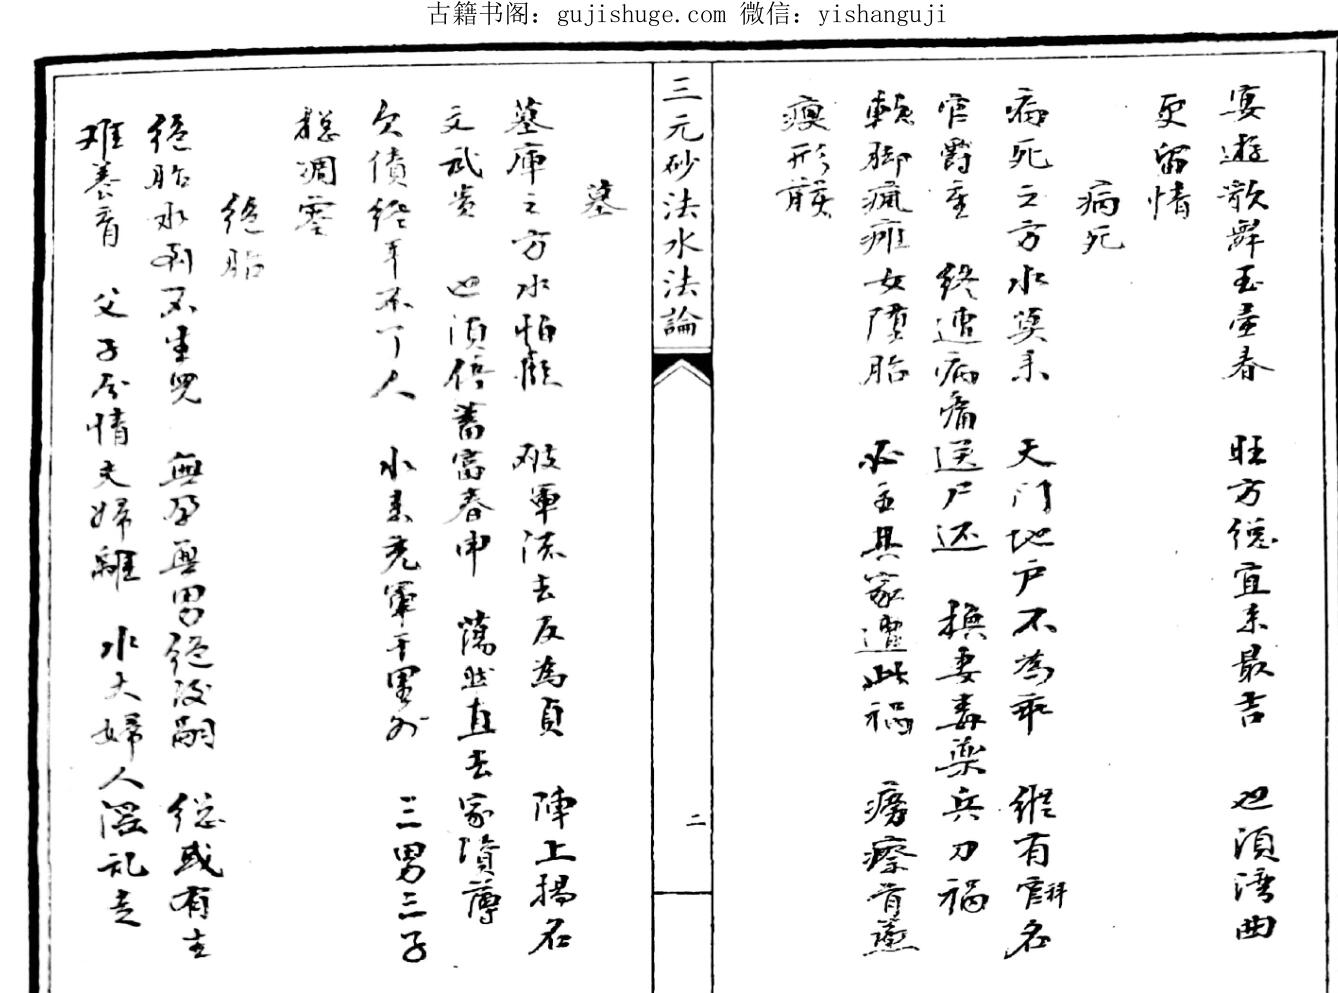 古籍书阁：gujishuge.com 微信：yishanguji
宴遊歌舞玉屋春 旺方総宜来最吉 也須湾曲
更留情
病死
病死之方水莫来 天门地户不為乖 縱有官科名
官爵重 終遭病痛送尸还 換妻毒藥兵刀禍
軟脚瘋癱女堕胎 必主其家遭此禍 癆瘵骨蒸
瘦形骸
三元砂法水法論
二
墓
墓庫之方水怕 破軍流去反為貞 陣上揚名
文武貴 也須停蓄富春申 蕩然直去家資薄
欠債終年不了人 水来充軍千里外 三男三子
総凋零
絕胎
絕胎水到不生兒 無孕無男絕後嗣 総或有生
难養育 父子分情夫婦離 水大婦人淫乱走